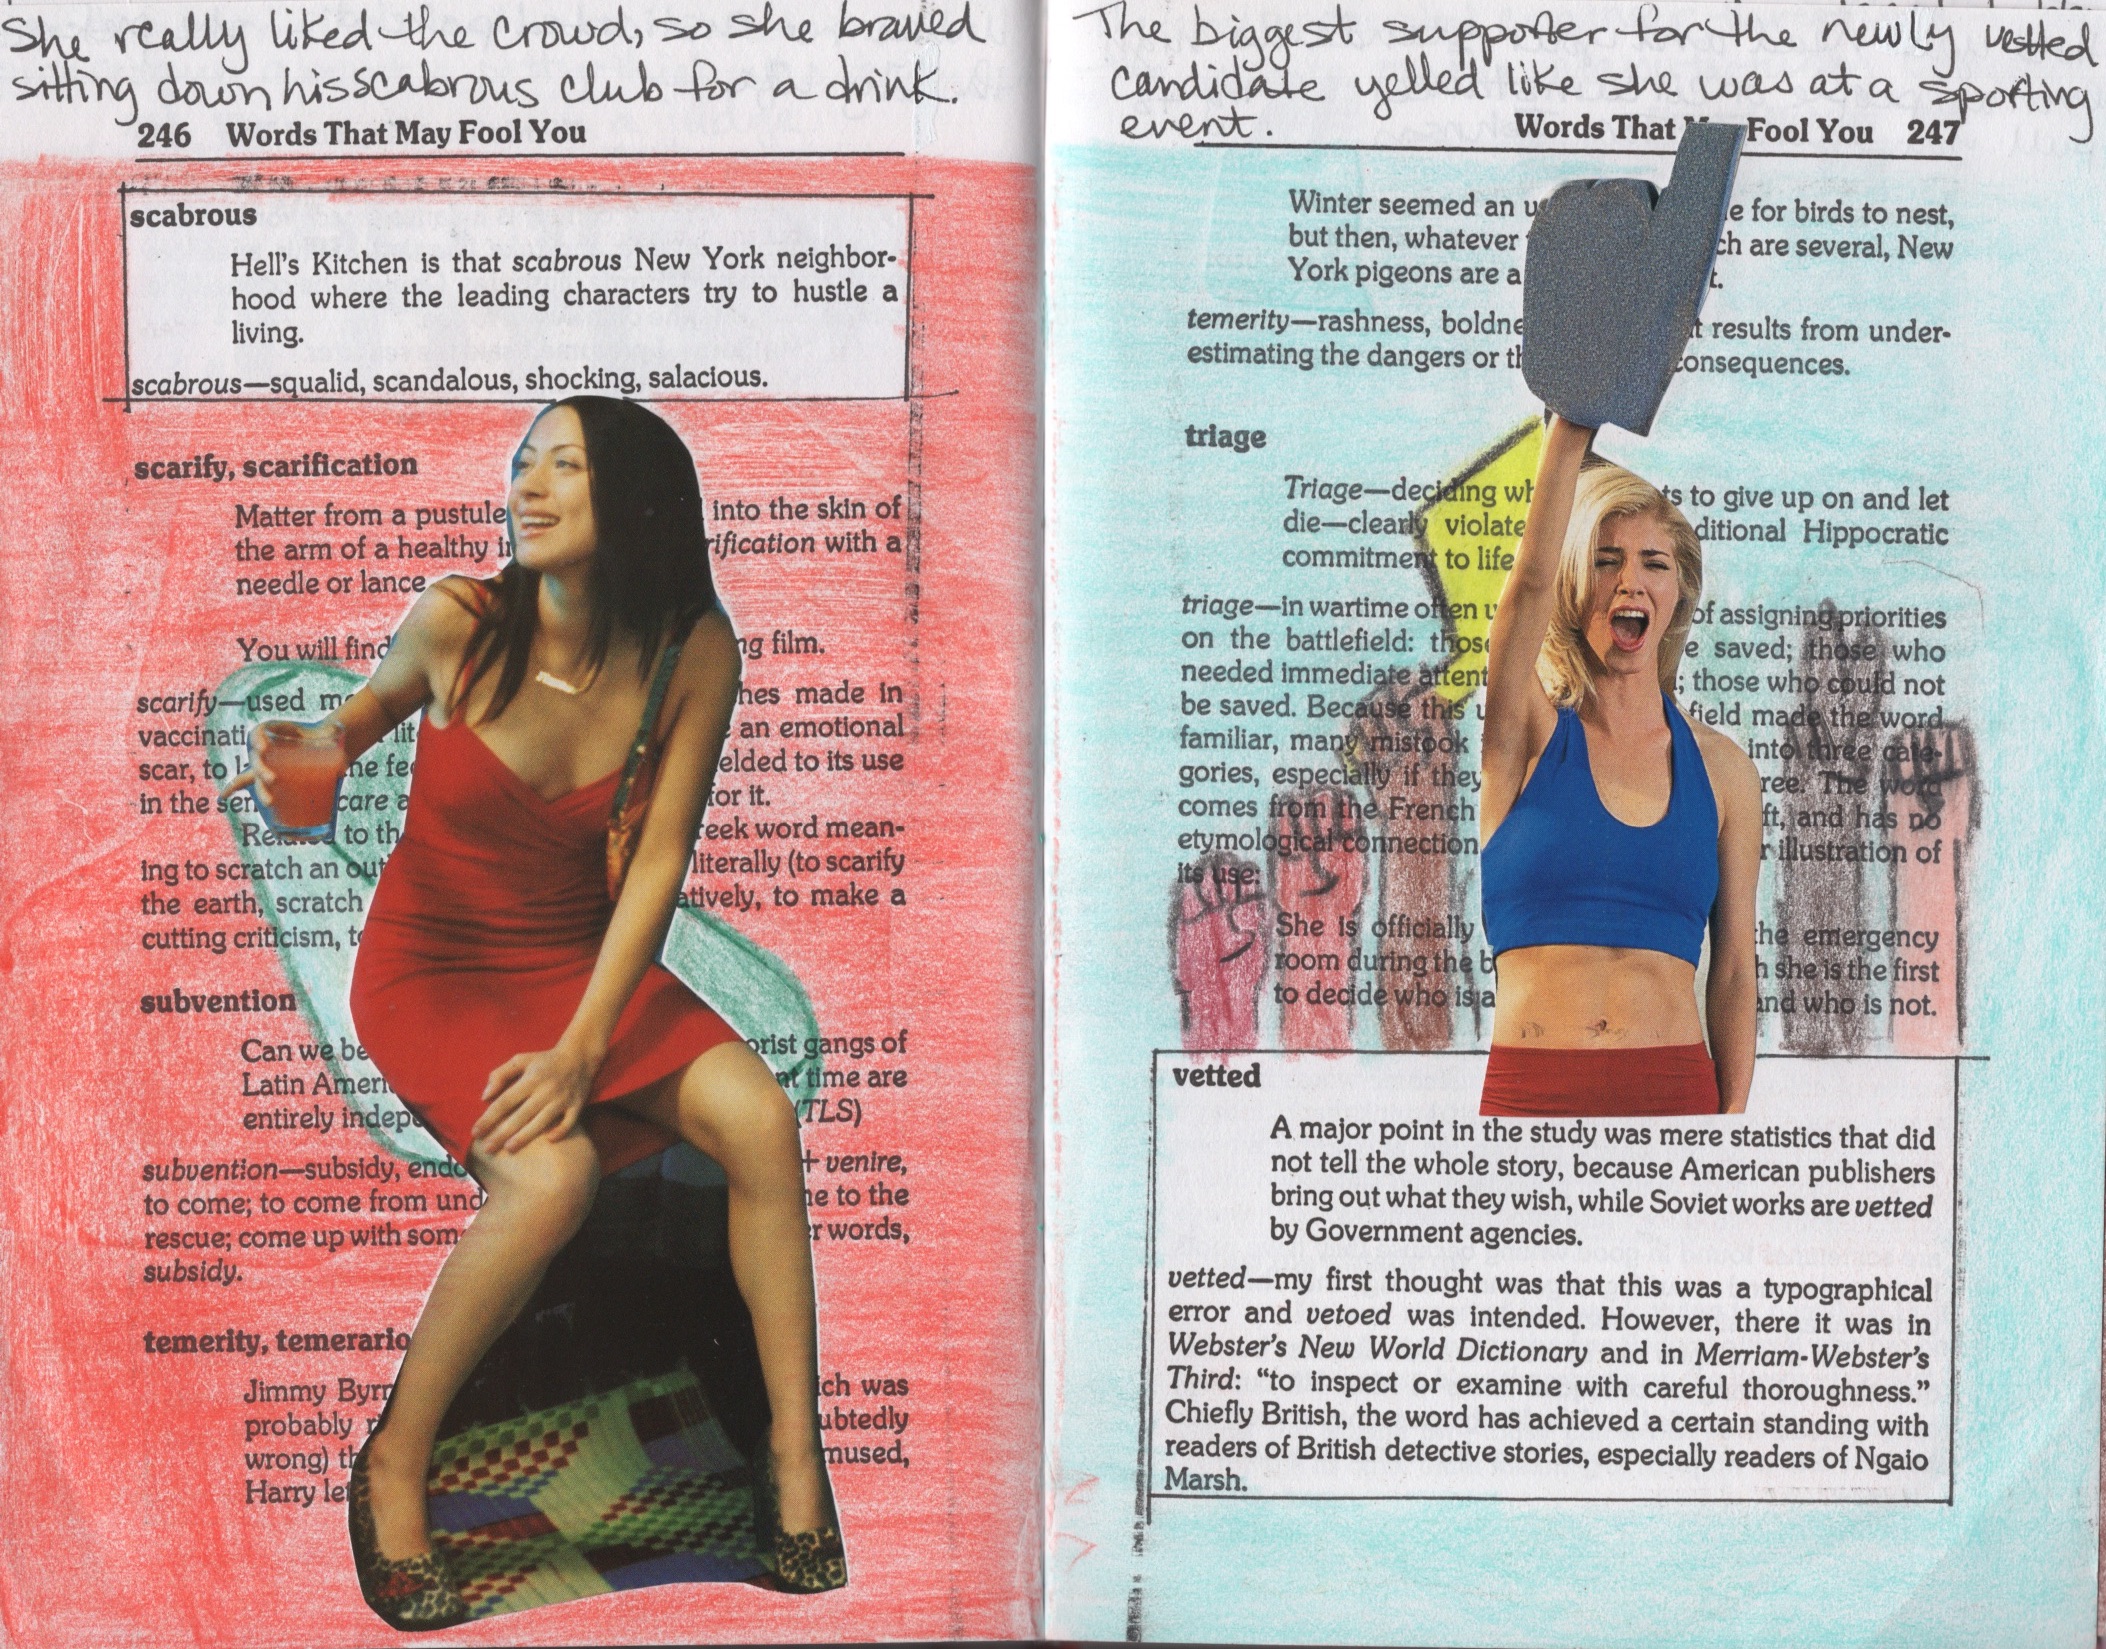 She really liked the crowd, so she braved
sitting down hisscabrous club for a drink.
246 Words That May Fool You
scabrous
Hell's Kitchen is that scabrous New York neighbor-
hood where the leading characters try to hustle a
living.
scabrous—squalid, scandalous, shocking, salacious.
scarify, scarification
Matter from a pustule into the skin of
the arm of a healthy rification with a
needle or lance
You will find ng film.
scarify—used hes made in
vaccinati an emotional
scar, to he fe elded to its use
in the sen care a for it.
to th reek word mean-
ing to scratch an out literally (to scarify
the earth, scratch atively, to make a
cutting criticism, to
subvention
Can we be orist gangs of
Latin Ameri nt time are
entirely indepe (TLS)
subvention—subsidy, endo + venire,
to come; to come from und e to the
rescue; come up with som r words,
subsidy.
temerity, temerario
Jimmy Byrn ich was
probably ubtedly
wrong) th mused,
Harry let
The biggest supporter for the newly vetted
candidate yelled like she was at a sporting
event.
Words That Fool You 247
Winter seemed an u e for birds to nest,
but then, whatever ch are several, New
York pigeons are a t.
temerity—rashness, boldne t results from under-
estimating the dangers or th consequences.
triage
Triage—deciding wh ts to give up on and let
die—clearly violate ditional Hippocratic
commitment to life
triage—in wartime often u of assigning priorities
on the battlefield: those e saved; those who
needed immediate attent ; those who could not
be saved. Because this u field made the word
familiar, many mistook into three cate-
gories, especially if they ree. The word
comes from the French ft, and has no
etymological connection r illustration of
its use:
She is officially the emergency
room during the b h she is the first
to decide who is a and who is not.
vetted
A major point in the study was mere statistics that did
not tell the whole story, because American publishers
bring out what they wish, while Soviet works are vetted
by Government agencies.
vetted—my first thought was that this was a typographical
error and vetoed was intended. However, there it was in
Webster's New World Dictionary and in Merriam-Webster's
Third: “to inspect or examine with careful thoroughness.”
Chiefly British, the word has achieved a certain standing with
readers of British detective stories, especially readers of Ngaio
Marsh.